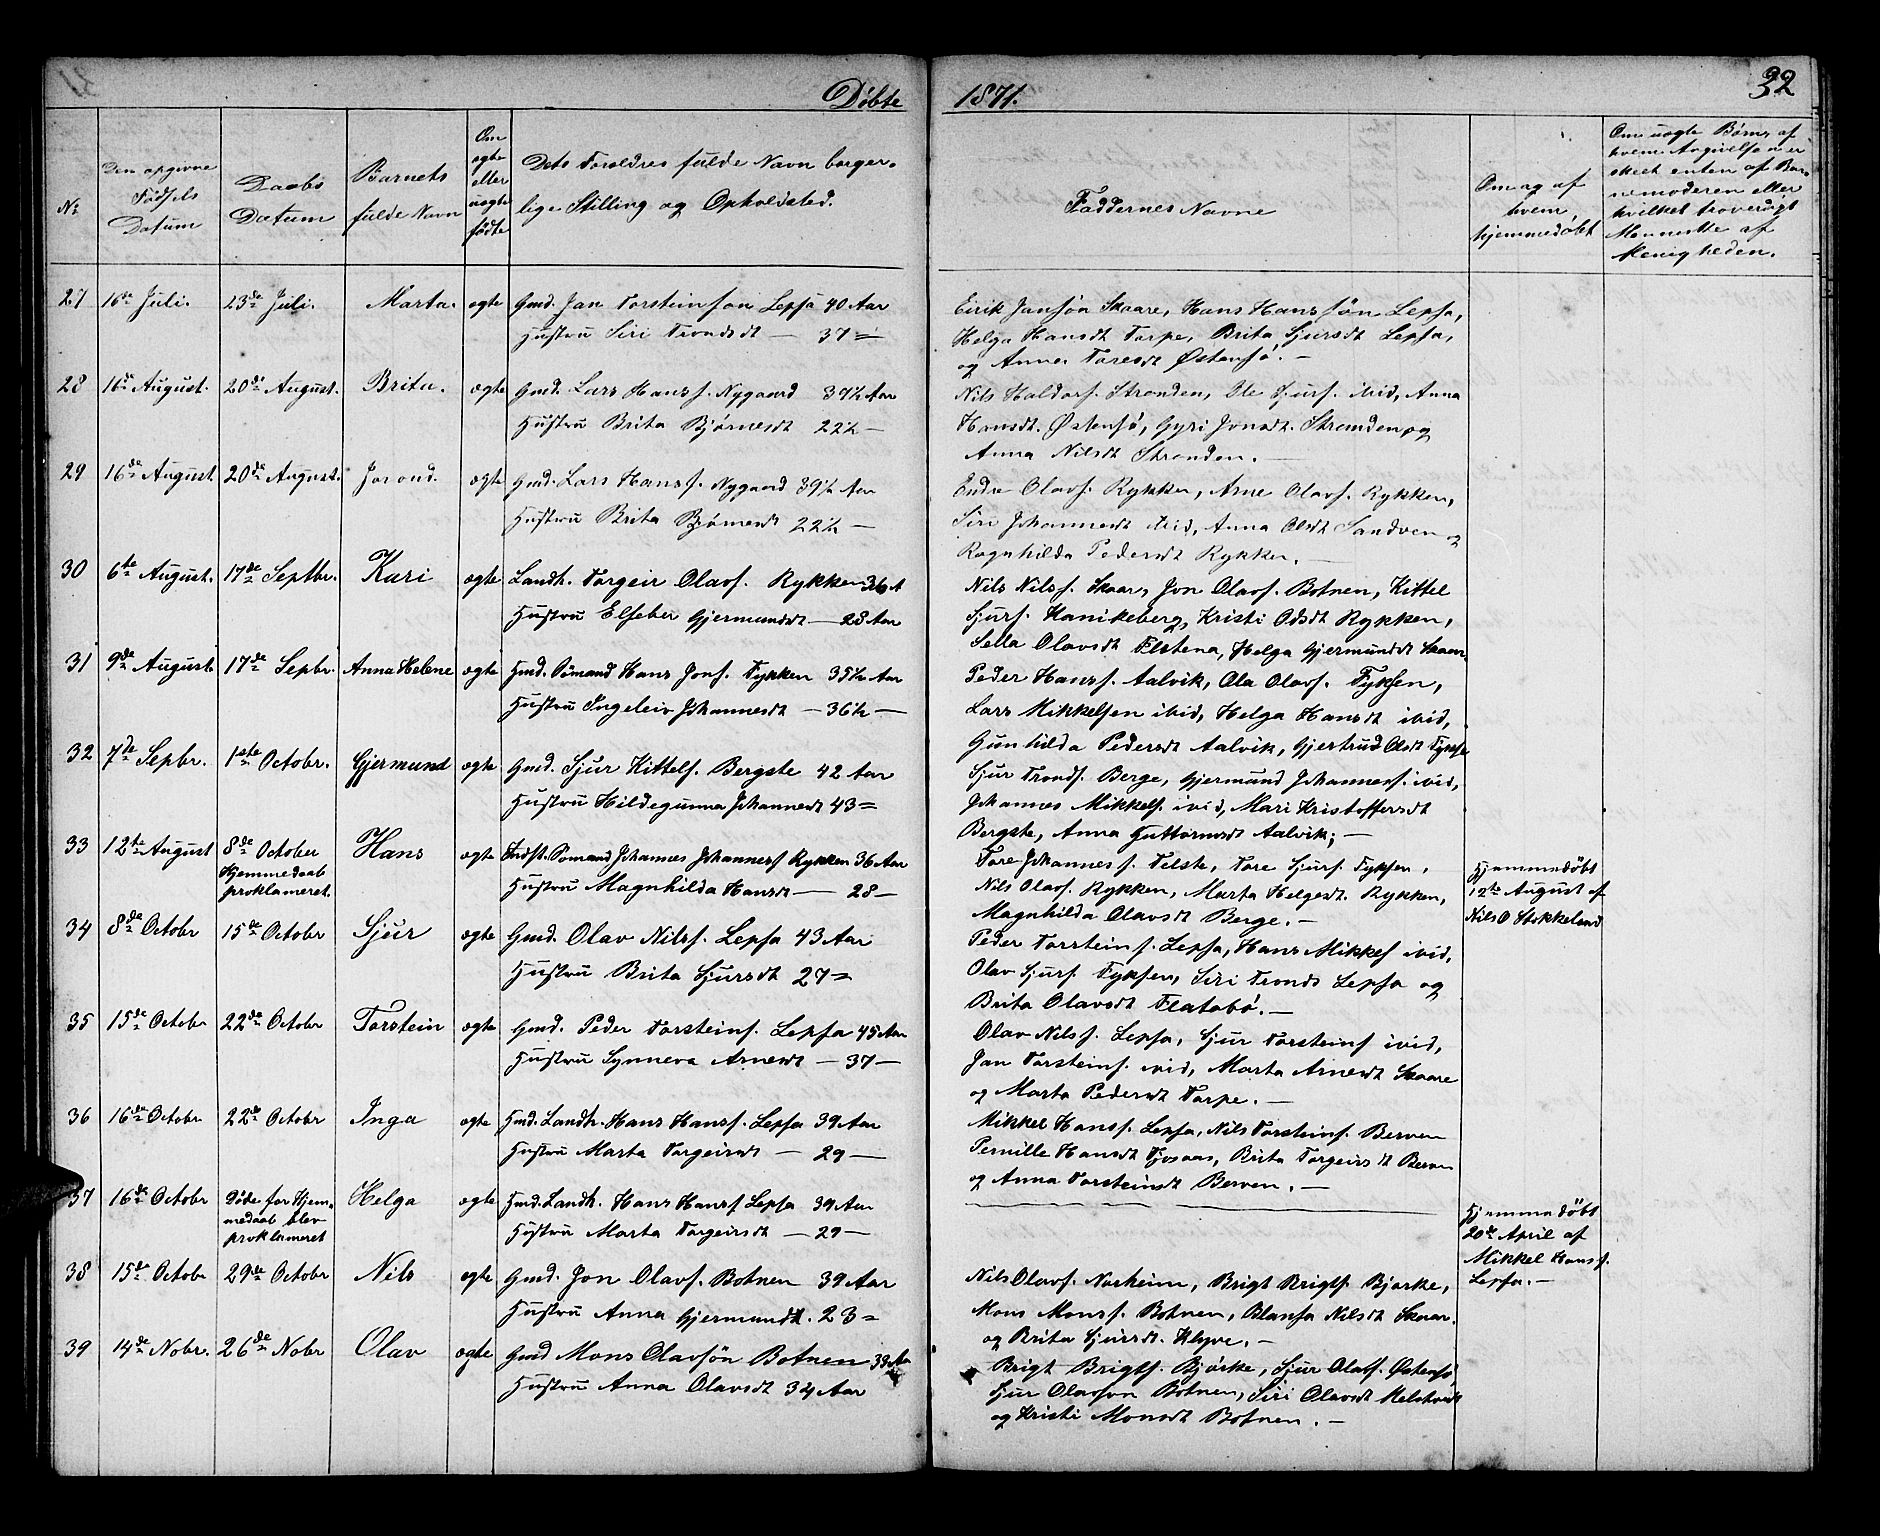 Døbte 1871. 32
No
Den opgivne
Fødsels
Datum
Daabs
Datum
Barnets
fulde Navn
Om
ægte
eller
uægte
fødte
Dets Forældres fulde Navn borger-
lige Stilling og Opholdsted.
Faddernes Navne
Om og af
hvem,
hjemmedøbt
Om uægte Børns, af
hvem Angivelsen er
skeet enten af Bar-
nemoderen eller
hvilket troverdigt
Menneske af
Menigheden.
27 16de Juli. 23de Juli. Marta. ægte Gmd. Jan Torsteinson Lepsa 40 Aar
Hustru Siri Trondsdt — 37 =
Eirik Jansøn Skaare, Hans Hanssøn Lepsa,
Helga Hansdt Torpe, Brita Sjursdt Lepsa,
og Anna Toresdt Østensø. —
28 16de August. 20de August. Brita. ægte Gmd. Lars Hanss. Nygaard 39½ Aar
Hustru Brita Bjørnesdt 22½ —
Nils Haldors. Stranden, Ole Sjurs. ibid, Anna
Hansdt. Østensø, Gyri Jonsdt. Stranden og
Anna Nilsdt Stranden. —
29 16de August. 20de August. Jorond. ægte Gmd. Lars Hanss. Nygaard 39½ Aar
Hustru Brita Bjørnesdt 22½ —
Endre Olavs. Rykken, Arne Olavs. Rykken,
Siri Johannesdt ibid, Anna Olsdt Sandven og
Ragnhilda Pedersdt Rykken. —
30 6te August. 17de Septbr. Kari ægte Landh. Torgeir Olavs. Rykken 36 A
Hustru Elseber Gjermundsdt — 28 Aar
Nils Nilss. Skaar, Jon Olavs. Botnen, Kittel
Sjurs. Hanikeberg, Kristi Odsdt Rykken,
Sella Olavsdt Flatena, Helga Gjermundsdt Skaar.
31 9de August. 17de Sepbr. Anna Helene ægte Hmd. Sømand Hans Jons. Fykken 35½ Aar
Hustru Ingeleiv Johannesdt — 36½ —
Peder Hanss. Aalvik, Ola Olavs. Fyksen,
Lars Mikkelsen ibid, Helga Hansdt ibid,
Gunhilda Pedersdt Aalvik, Gjertrud Olsdt Fykse
32 7de Sepbr. 1ste Octobr. Gjermund ægte Gmd. Sjur Kittels. Bergste 42 Aar
Hustru Hildegunna Johannesdt 43 =
Sjur Tronds. Berge, Gjermund Johanness. ibid,
Johannes Mikkels. ibid, Mari Kristoffersdt
Bergste, Anna Guttormsdt Aalvik; —
33 12te August 8de October
Hjemmedaab
proklameret.
Hans ægte Indst. Sømand Johannes Johanness Rykken 36 Aar
Hustru Magnhilda Hansdt — 28 —
Tore Johanness. Telste, Tore Sjurs. Fyksen,
Nils Olavs. Rykken, Marta Helgesdt. Rykken,
Magnhilda Olavsdt Berge. —
Hjemmedøbt
12te August af
Nils O Stokkeland
34 8de Octobr 15de Octobr Sjur ægte Gmd. Olav Nilss. Lepsa 43 Aar
Hustru Brita Sjursdt 27 =
Peder Torsteins. Lepsa, Hans Mikkels ibid,
Olav Sjurs Fyksen, Siri Tronds Lepsa og
Brita Olavsdt Flatabø. —
35 15de Octobr 22de Octobr Torstein ægte Gmd. Peder Torsteins. Lepsa 45 Aar
Hustru Synneva Arnesdt — 37 —
Olav Nilss. Lepsa, Sjur Torsteins ibid,
Jan Torsteins. ibid, Marta Arnesdt Skaare
og Marta Pedersdt Torpe. —
36 16de Octobr. 22de Octobr Inga ægte Hmd. Landh. Hans Hanss. Lepsa 39 Aar
Hustru Marta Torgeirsdt — 29 —
Mikkel Hanss. Lepsa, Nils Torsteins. Berven
Pernille Hansdt Tjosaas, Brita Torgeirsdt Berven
og Anna Torsteinsdt Berven. —
37 16de Octobr Døde før Hjem-
medaab blev
proklameret
Helga ægte Hmd. Landh. Hans Hanss Lepsa 39 Aar
Hustru Marta Torgeirsdt — 29 —
Hjemmedøbt
20de April af
Mikkel Hanss.
Lepsa. —
38 15de Octobr 29de Octobr Nils ægte Gmd. Jon Olavs. Botnen 39 Aar
Hustru Anna Gjermundsdt. 23 =
Nils Olavs. Norheim, Brigt Brigts. Bjørke,
Mons Monss. Botnen, Blansa Nilsdt Skaar.
og Brita Sjursdt. Klyve. —
39 14de Nobr. 26de Nobr Olav ægte Gmd Mons Olavsøn Botnen 39 Aar
Hustru Anna Olavsdt 34 Aar
Brigt Brigts. Bjørke, Sjur Olavs. Østensø,
Sjur Olavson Botnen, Siri Olavsdt Melstveit
og Kristi Monsdt Botnen. —